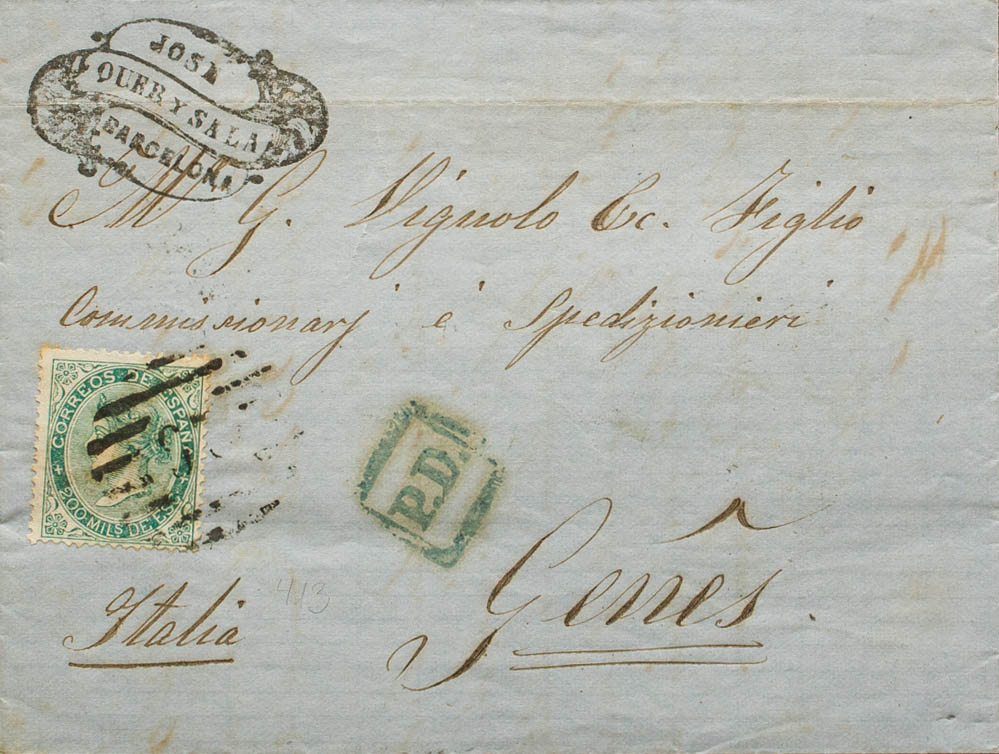 JOSÉ
OUER Y SALA
BARCELONA
M G. Vignolo &c. Figlio
Commissionarj é Spedizionieri
CORREOS DE ESPAÑA
200 MILS DE ES
P.D.
Genês.
Italia
413